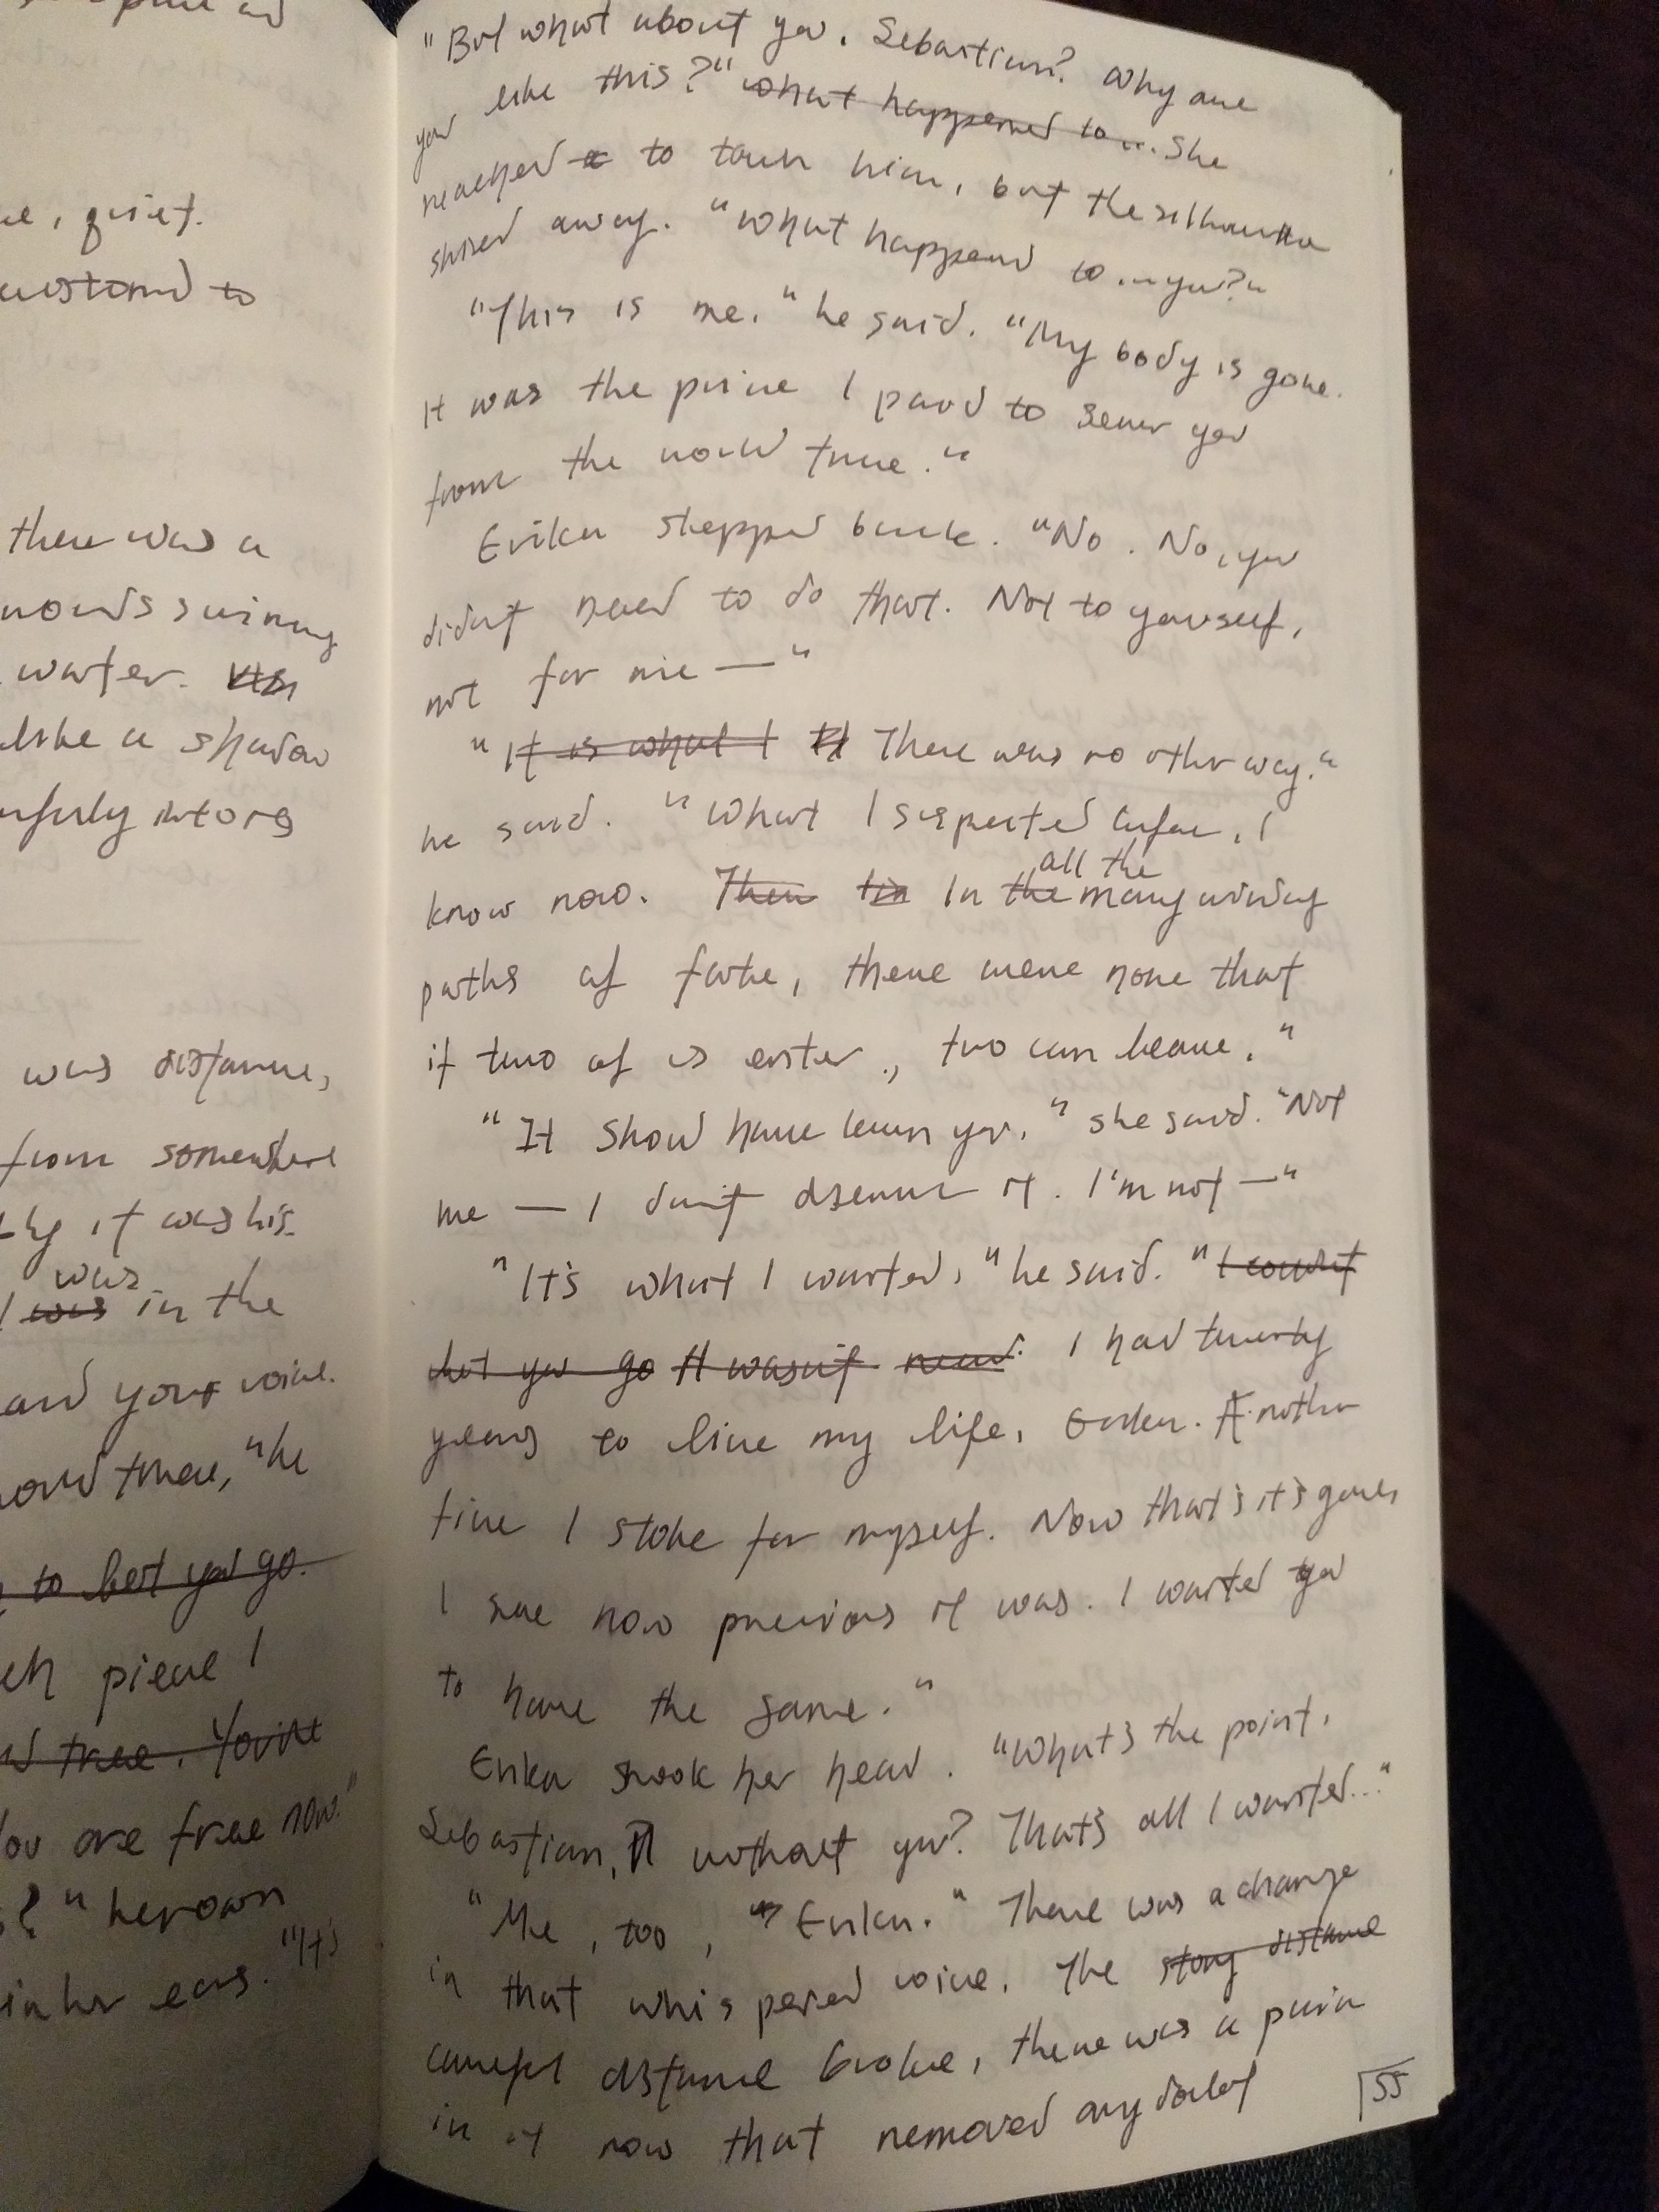 ue, quiet.
to
there was a
words swimmy
water.
like a shadow
into its
was distance,
from somewhere
it was his.
was
was in the
and your voice.
tree, "he
to let you go.
piece I
tree. You're
You are free now."
" her own
in her ears. "It's
"But what about you, Sebastian? Why are
you like this?" What happened to... She
reached to touch him, but the silhouette
shied away. "What happened to... you?"
"This is me," he said. "My body is gone.
It was the price I paid to sever you
from the world tree."
Erika stepped back. "No. No, you
didn't need to do that. Not to yourself,
not for me — "
"It is what I It There was no other way,"
he said. "What I suspected before, I
know now. Then In the all the many winding
paths of fate, there were none that
if two of us enter, two can leave."
"It should have been you," she said. "Not
me — I don't deserve it. I'm not — "
"It's what I wanted," he said. "I couldn't
let you go It wasn't never. I had twenty
years to live my life, Erika. Another
five I stole for myself. Now that's it's gone,
I see how precious it was. I wanted you
to have the same."
Erika shook her head. "What's the point,
Sebastian, without you? That's all I wanted..."
"Me, too, Erika." There was a change
in that whispered voice. The stony distance
careful distance broke, there was a pain
in it now that removed any doubt
55